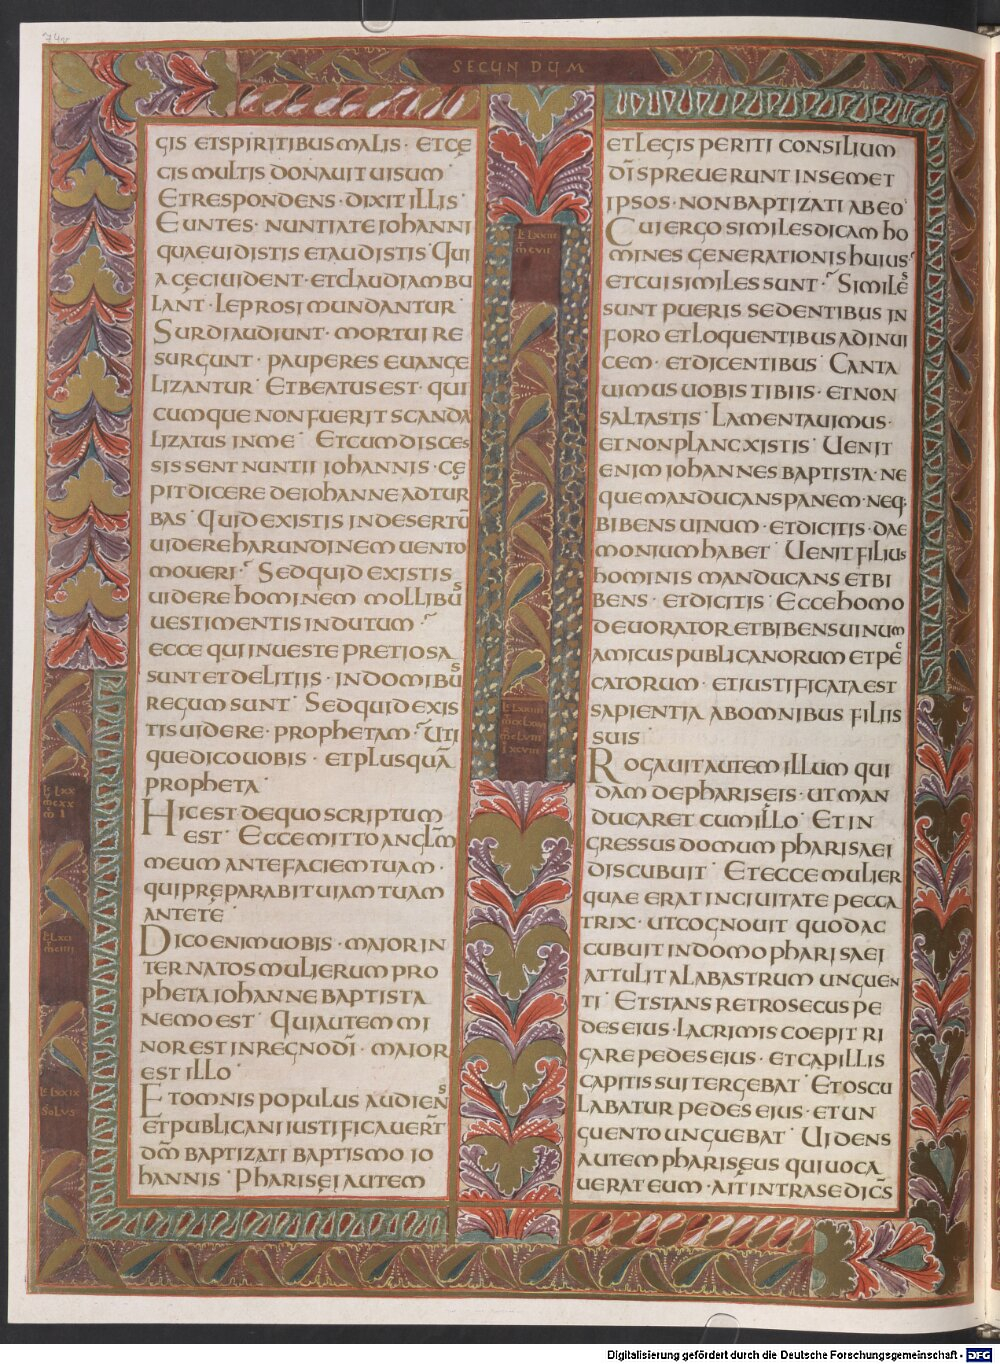 74v
SECUNDUM
gis et spiritibus malis · et cę
cis multis donavit uisum
Et respondens · dixit illis ·
Euntes · nuntiate iohanni
quae uidistis et audistis · Qui
a cęci uident · et claudi ambu
lant · leprosi mundantur
Surdi audiunt · mortui re
surgunt · pauperes euange
lizantur · Et beatus est · qui
cumque non fuerit scanda
lizatus in me · Et cum disces
sissent nuntii iohannis · cę
pit dicere de iohanne ad tur
bas · Quid existis in desertū
uidere harundinem uento
moueri · Sed quid existis
uidere hominem mollibus
uestimentis indutum ·
ecce qui in ueste pretiosa
sunt et delitiis · in domibus
regum sunt · Sed quid exis
tis uidere · prophetam · Uti
que dico uobis · et plus quā
propheta ·
Hic est de quo scriptum
est · Ecce mitto angl̄m
meum ante faciem tuam ·
qui pręparabit uiam tuam
ante te ·
Dico enim uobis · maior in
ter natos mulierum pro
pheta iohanne baptista
nemo est · Qui autem mi
nor est in regno dī · maior
est illo ·
Et omnis populus audiens
et publicani iustificauer̄t
dm̄ baptizati baptismo io
hannis · Pharisęi autem
et legis periti consilium
dī spreuerunt in semet
ipsos · non baptizati ab eo ·
Cui ergo similes dicam ho
mines generationis huius
et cui similes sunt · Similes
sunt pueris sedentibus in
foro et loquentibus ad inui
cem · et dicentibus · Canta
uimus uobis tibiis · et non
saltastis · Lamentauimus ·
et non planxistis · Uenit
enim iohannes baptista · ne
que manducans panem · neq;
bibens uinum · et dicitis · dae
monium habet · Uenit filius
hominis manducans et bi
bens · et dicitis · Ecce homo
deuorator et bibens uinum
amicus publicanorum et pec
catorum · et iustificata est
sapientia ab omnibus filiis
suis ·
Rogauit autem illum qui
dam de phariseis · ut man
ducaret cum illo · Et in
gressus domum pharisaei
discubuit · Et ecce mulier
quae erat in ciuitate pecca
trix · ut cognouit quod ac
cubuit in domo pharisaei
attulit alabastrum unguen
ti · Et stans retro secus pe
des eius · lacrimis coepit ri
gare pedes eius · et capillis
capitis sui tergebat · Et oscu
labatur pedes eius · et un
guento unguebat · Uidens
autem phariseus qui uoca
uerat eum · ait intra se dicēs
Digitalisierung gefördert durch die Deutsche Forschungsgemeinschaft - DFG